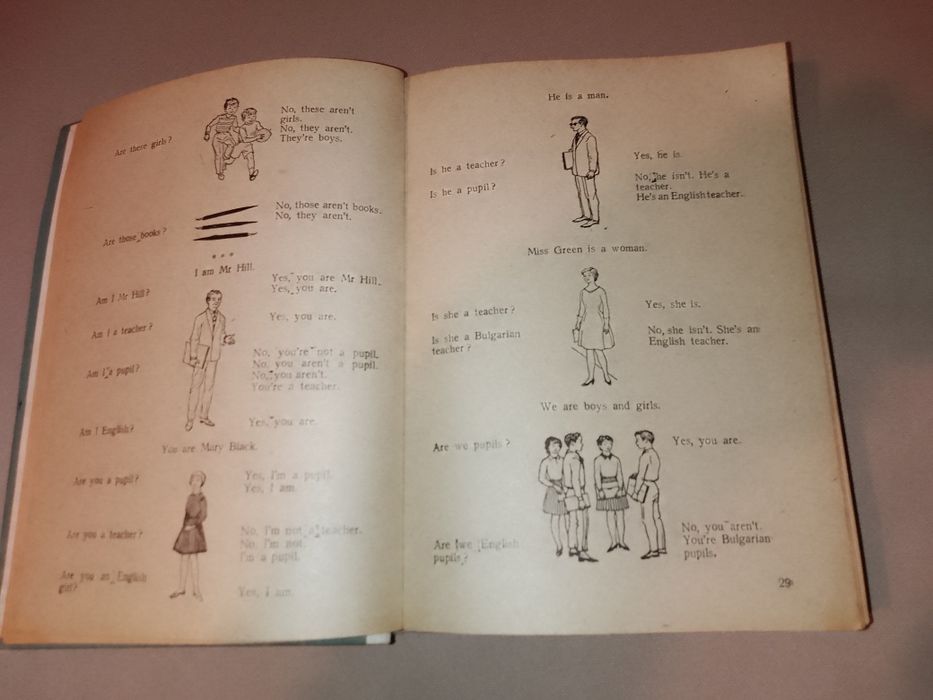 Are these girls?
No, these aren't
girls.
No, they aren't.
They're boys.
Are those books?
No, those aren't books.
No, they aren't.
* * *
I am Mr Hill.
Am I Mr Hill?
Yes, you are Mr Hill.
Yes, you are.
Am I a teacher?
Yes, you are.
Am I a pupil?
No, you're not a pupil.
No, you aren't a pupil.
No, you aren't.
You're a teacher.
Am I English?
Yes, you are.
You are Mary Black.
Are you a pupil?
Yes, I'm a pupil.
Yes, I am.
Are you a teacher?
No, I'm not a teacher.
No, I'm not.
I'm a pupil.
Are you an English
girl?
Yes, I am.
He is a man.
Is he a teacher?
Yes, he is.
Is he a pupil?
No, he isn't. He's a
teacher.
He's an English teacher.
Miss Green is a woman.
Is she a teacher?
Yes, she is.
Is she a Bulgarian
teacher?
No, she isn't. She's an
English teacher.
We are boys and girls.
Are we pupils?
Yes, you are.
Are we English
pupils?
No, you aren't.
You're Bulgarian
pupils.
29